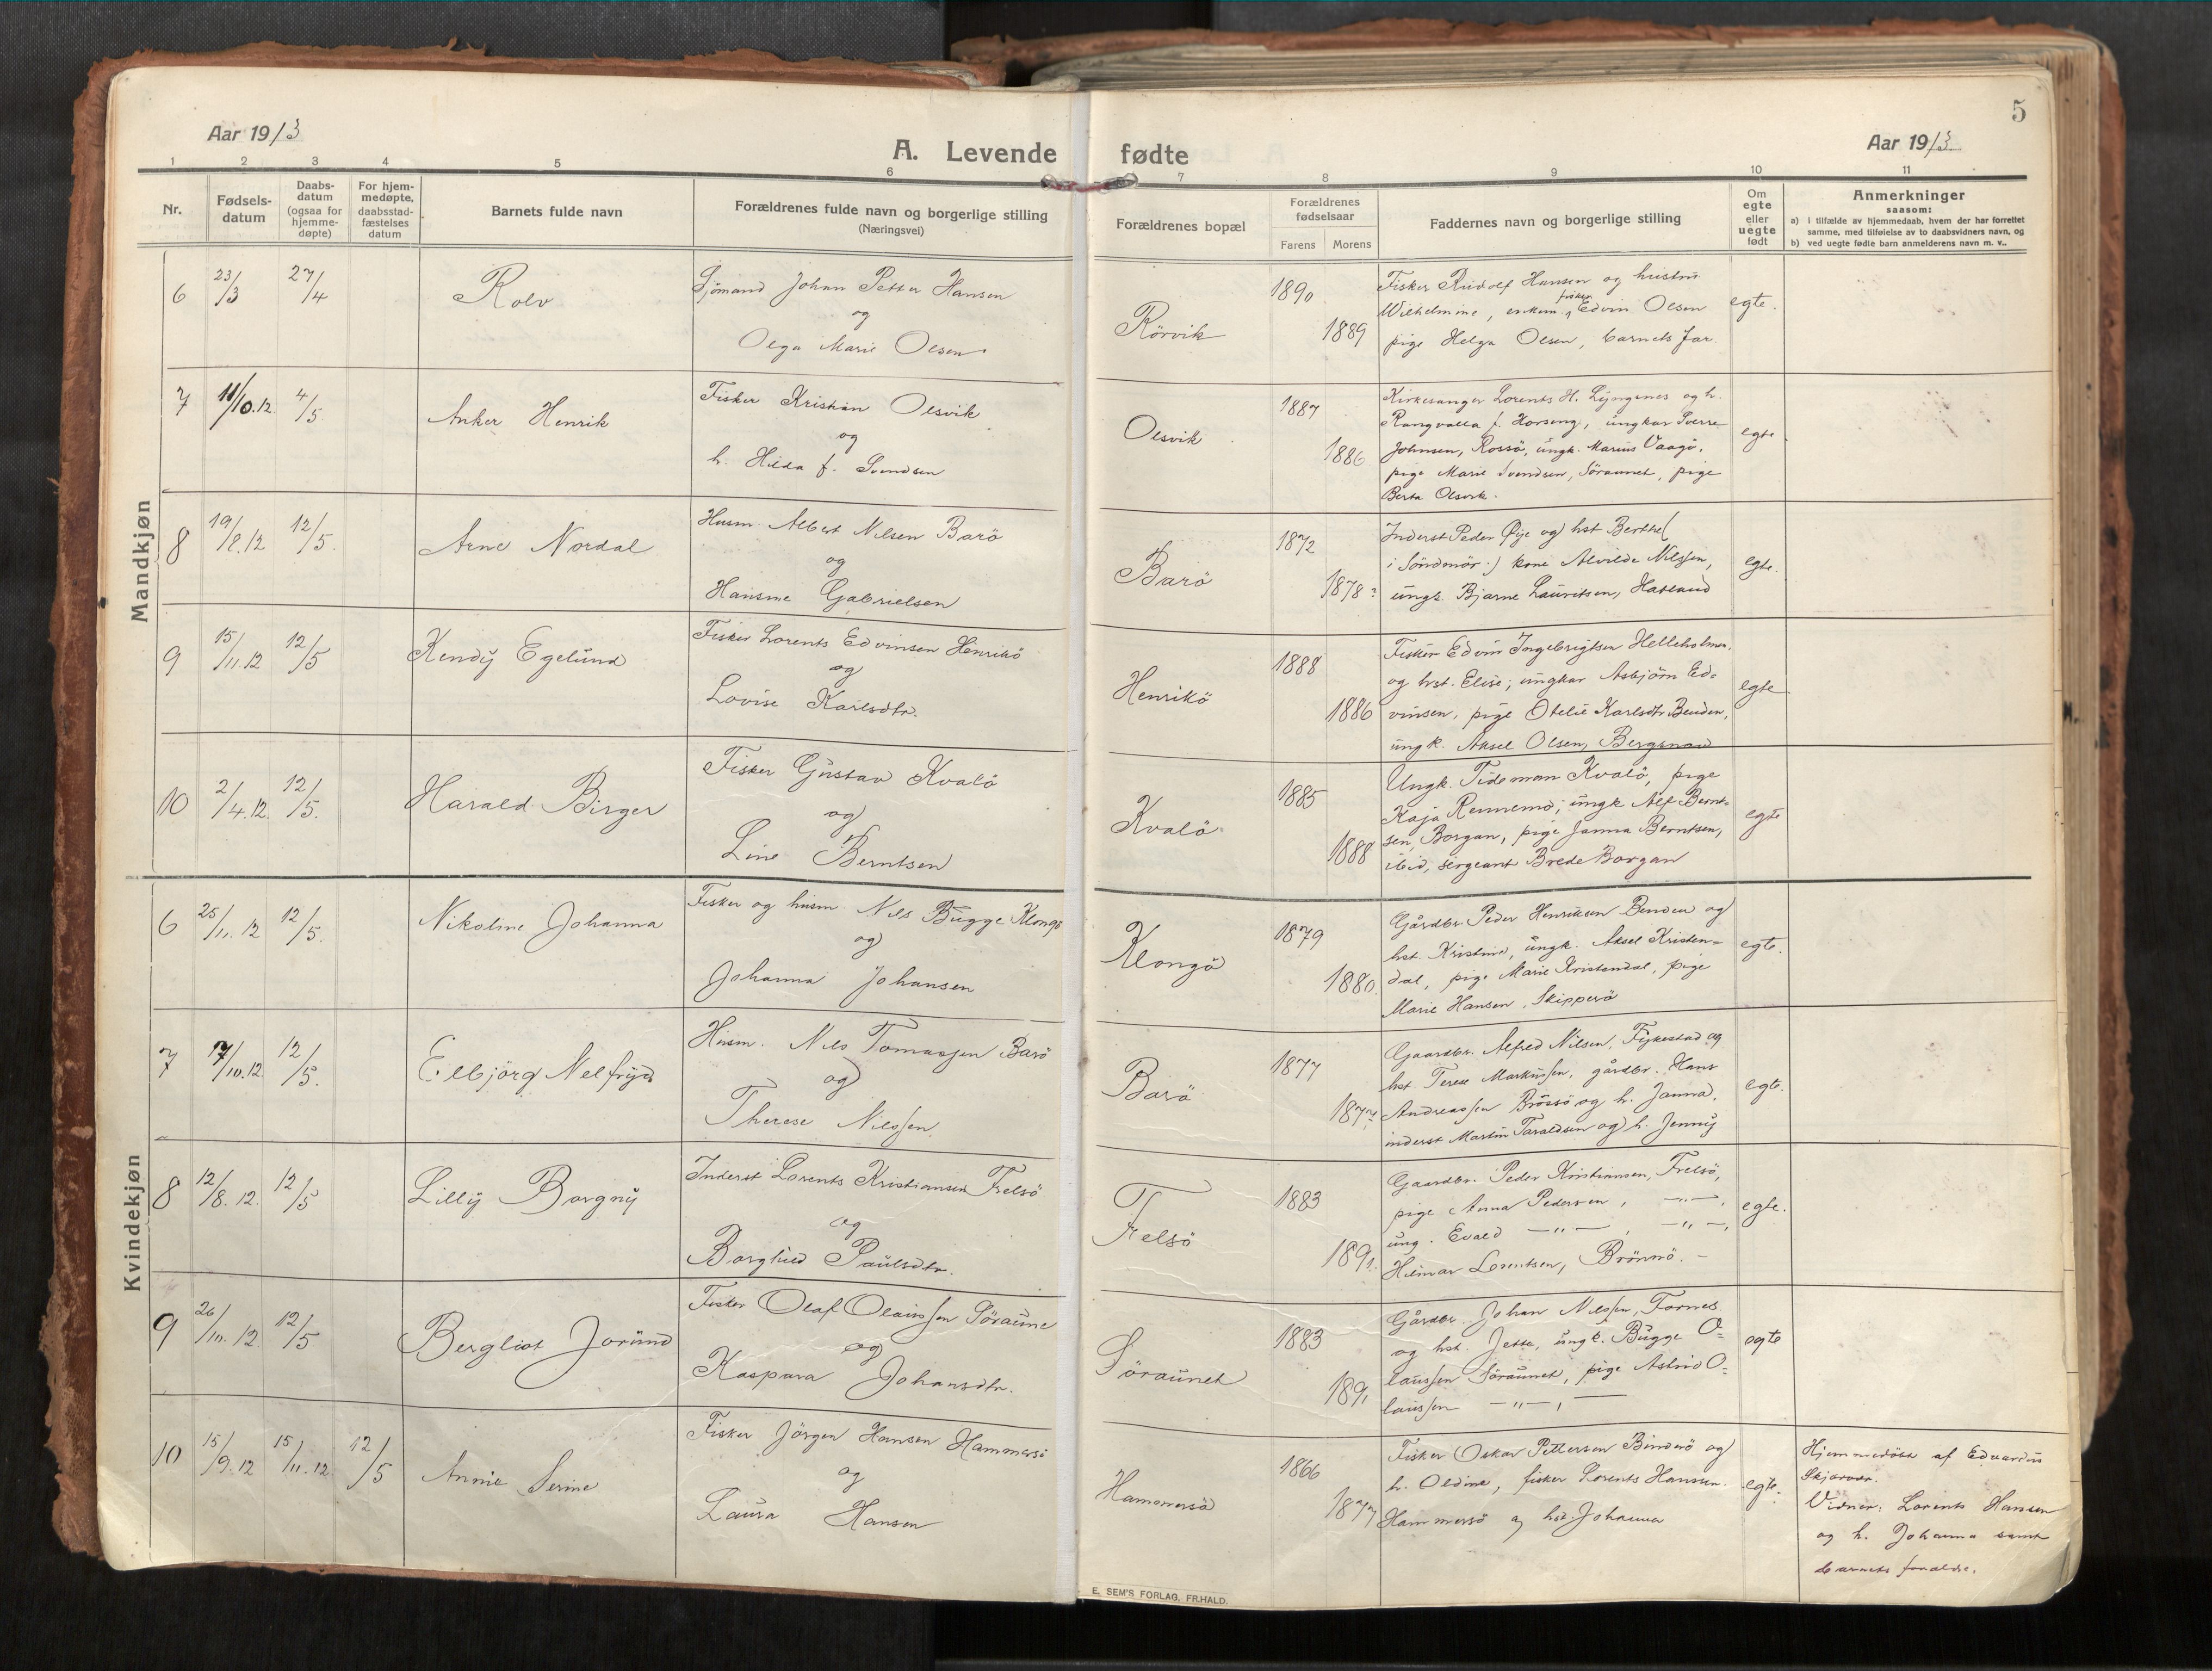 5
Aar 1913
A. Levende fødte
Aar 1913.
1 2 3 4 5 6 7 8 9 10 11
Nr.
Fødsels-
datum
Daabs-
datum
(ogsaa for
hjemme-
døpte)
For hjem-
medøpte,
daabsstad-
fæstelses
datum
Barnets fulde navn
Forældrenes fulde navn og borgerlige stilling
(Næringsvei)
Forældrenes bopæl
Forældrenes
fødselsaar
Farens Morens
Faddernes navn og borgerlige stilling
Om
egte
eller
uegte
født
Anmerkninger
saasom:
a) i tilfælde av hjemmedaab, hvem der har forrettet
samme, med tilføielse av to daabsvidners navn, og
b) ved uegte fødte barn anmelderens navn m. v..
Mandkjøn
6 23/3 27/4 Rolv
Sjömand Johan Petter Hansen
og
Olga Marie Olsen.
Rörvik
1890
1889
Fisker Rudolf Hansen og hustru
Wilhelmine, enkem. fisker Edvin Olsen
pige Helga Olsen, barnets far.
egte.
7 11/10.12. 4/5. Anker Henrik
Fisker Kristian Olsvik
og
h. Hilda f. Svendsen
Olsvik
1887
1886
Kirkesanger Lorents H.
Rangvalla f. Horseng, ungkar Sverre
Johnsen, Rossö, ungk. Marius Vaagö,
pige Marie Svendsen, Söraunet, pige
Berta Olsvik.
egte
8 19/8.12 12/5. Arne Nordal
Husm. Albert Nilsen Barö
og
Hansine Gabrielsen
Barö
1872
1878?
Inderst Peder Öye og hst Berthe (
i Söndmör.) kone Alvilde Nilssen,
ungk. Bjarne Lauritsen, Hatland
egte.
9 15/11.12 12/5 Kendy Egelund
Fisker Lorents Edvinsen Henrikö
og
Lovise Karlsdtr.
Henrikö
1888
1886
Fisker Edvin Ingebrigtsen Helleholmen,
og hst. Elise; ungkar Asbjörn Ed-
vinsen, pige Otelie Karlsdtr Benden,
ungk. Aksel Olsen, Bergsnov
egte
10 2/4.12. 12/5. Harald Birger
Fisker Gustav Kvalö
og
Line Berntsen
Kvalö
1885
1888
Ungk. Tideman Kvalö, pige
Kaja Rennemo; ungk Alf Bernt-
sen, Borgan, pige Janna Berntsen,
ibid, sergeant Brede Borgan
egte
Kvindekjøn
6 25/11.12 12/5. Nikoline Johanna
Fisker og husm Nils Bugge Klongö
og
Johanna Johansen
Klongö
1879
1880.
Gårdbr Peder Henriksen Benden og
hst. Kristine, ungk. Aksel Kristen-
dal, pige Marie Kristendal, pige
Marie Hansen, Skipperö
egte.
7 17/10.12. 12/5. Elbjörg Nelfryd
Husm. Nils Tomassen Barö
og
Therese Nilssen.
Barö
1877
Gaardbr. Alfred Nilsen, Fykestad og
hst. Terese Markussen, gårdbr. Hans
Andreassen Brössö og h. Janna,
inderst Martin Taraldsen og h. Jenny
egte.
8 12/8.12. 12/5 Lilly Borgny
Inderst Lorents Kristiansen Frelsö
og
Borghild Paulsdtr.
Frelsö
1883
1891.
Gaardbr. Peder Kristiansen, Frelsö,
pige Anna Pedersen, —"—,
ung. Evald —"—, —"—,
Hilmar Lorentsen, Brönnö. –
egte.
9 26/10.12. 12/5 Bergliot Jorund
Fisker Olaf Olaussen Söraune
og
Kaspara Johansdtr.
Söraunet
1883
1891
Gårdbr. Johan Nilssen, Fornes
og hst. Jette, ungk. Bugge O-
laussen Söraunet, pige Astrid O-
laussen —"—, —
egte
10 15/9.12 15/11.12. 12/5 Annie Serine
Fisker Jörgen Hansen Hammersö
og
Laura Hansen
Hammersö
1866
1877
Fisker Oskar Pettersen Binderö og
h. Oldine, fisker Lorents Hanssen.
Hammersö og hst. Johanna
egte.
Hjemmedöbt af Edvardus
Skjærvær.
Vidner: Lorents Hansen
og h. Johanna samt
barnets forældre.
E. SEM'S FORLAG, FR.HALD.